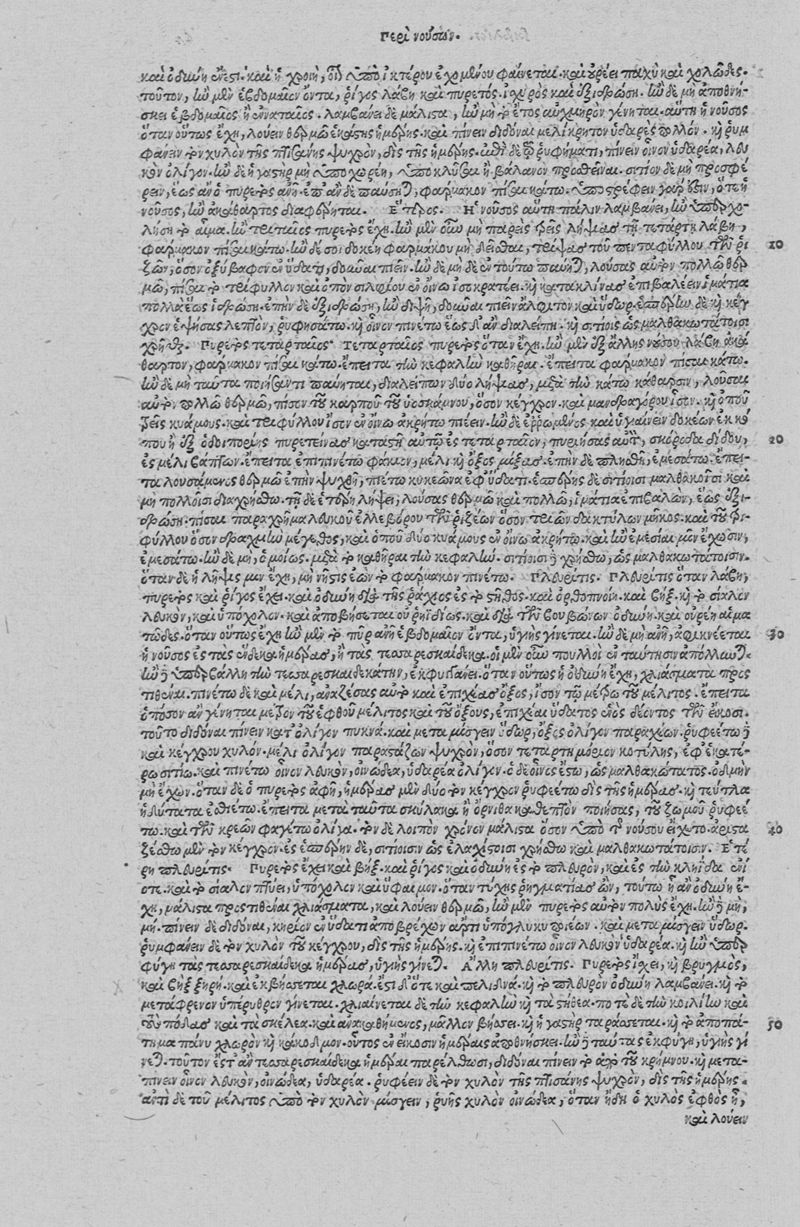 Περὶ νούσων.
καὶ ὀδύνη ἔνεστι. καὶ ἡ χροιὴ, οἵη ὑπὸ ἰκτέρου ἐχομένου φαίνεται. καὶ οὐρέει παχὺ καὶ χολῶδες.
τοῦτον, ἢν μὲν ἑβδομαῖον ὄντα, ῥῖγος λάβῃ καὶ πυρετὸς ἰσχυρὸς καὶ ἐξιδρώσῃ. ἢν δὲ μὴ ἀποθνή-
σκει ἑβδομαῖος ἢ ἐναταῖος. λαμβάνει δὲ μάλιστα, ἢν μὴ τὸ ἔτος αὐχμηρὸν γένηται. αὕτη ἡ νοῦσος
ὅταν οὕτως ἔχῃ, λούειν θερμῷ ἑκάστης ἡμέρης. καὶ πίνειν διδόναι μελίκρητον ὑδαρὲς πολλόν. καὶ ῥυμ
φάνειν τὸν χυλὸν τῆς πτισάνης ψυχρὸν, δὶς τῆς ἡμέρης. ἐπὶ δὲ τῷ ῥυφήματι, πίνειν οἶνον ὑδαρέα, λευ
κὸν ὀλίγον. ἢν δὲ ἡ γαστὴρ μὴ ὑποχωρέῃ, ὑποκλύσαι ἢ βάλανον προσθεῖναι. σιτίον δὲ μὴ προσφέ
ρειν, ἕως ἂν ὁ πυρετὸς ἀνῇ. ἐπὴν δὲ παύσηται, φάρμακον πῖσαι κάτω. ὑποστρέφειν γὰρ ἔστιν, ὅτε ἡ
νοῦσος, ἢν ἀκάθαρτος διαφέρηται. Ἕτερος. Ἡ νοῦσος αὕτη πάλιν λαμβάνει, ἢν ὑπερχο-
λήσῃ τὸ αἷμα. ἢν τριταῖος πυρετὸς ἔχῃ. ἢν μὲν οὖν μὴ παρεὶς τρεῖς λήψιας τῇ τετάρτῃ λάβῃ,
φάρμακον πῖσαι κάτω. ἢν δέ σοι δοκέῃ φαρμάκου μὴ δεῖσθαι, τρίψας τοῦ πενταφύλλου τῶν ῥι 10
ζῶν, ὅσον ὀξύβαφον ἐν ὕδατι, δοῦναι πιεῖν. ἢν δὲ μὴ δὲ ἐν τούτῳ παύηται, λούσας αὐτὸν πολλῷ θερ
μῷ, πῖσαι τὸ τρίφυλλον καὶ ὀπὸν σιλφίου ἐν οἴνῳ ἰσοκρατεῖ. καὶ κατακλίνας ἐπιβαλέειν ἱμάτια
πολλὰ ἕως ἱδρώσῃ. ἐπὴν δὲ ἐξιδρώσῃ, ἢν διψῇ, δοῦναι πιεῖν ἄλφιτον καὶ ὕδωρ. ἑσπέρην δὲ καὶ κέγ
χρον ἑψήσας λεπτὸν, ῥυφησάτω. καὶ οἶνον πινέτω ἕως δ᾽ ἂν διαλείπῃ. καὶ σιτίοις ὡς μαλθακωτάτοισι
χρῆσθαι. Πυρετὸς τεταρταῖος. Τεταρταῖος πυρετὸς ὅταν ἔχῃ. ἢν μὲν ἐξ ἄλλης νούσου λάβῃ ἀκά
θαρτον, φάρμακον πῖσαι κάτω. ἔπειτα τὴν κεφαλὴν καθῆραι. ἔπειτα φάρμακον πῖσαι κάτω.
ἢν δὲ μὴ ταῦτα ποιήσαντι παύηται, διαλείπων δύο λήψιας, μετὰ τὴν κάτω κάθαρσιν, λούσας
αὐτὸν πολλῷ θερμῷ, πῖσον τοῦ καρποῦ τοῦ ὑοσκυάμου, ὅσον κέγχρον. καὶ μανδραγόρου ἴσον. καὶ ὀποῦ
τρεῖς κυάμους. καὶ τριφύλλου ἴσον ἐν οἴνῳ ἀκρήτῳ πιεῖν. ἢν δὲ ἐρρωμένος καὶ ὑγιαίνειν δοκέων ἐκ κό
που ἢ ἐξ ὁδοιπορίης πυρετήνας καταστῇ αὐτῷ ἐς τεταρταῖον, πυριήσας αὐτὸν, σκόροδα δίδου, 20
ἐς μέλι βάπτων. ἔπειτα ἐπιπινέτω φάκιον, μέλι καὶ ὄξος μίξας. ἐπὴν δὲ πλησθῇ, ἐμεσάτω. ἔπει-
τα λουσάμενος θερμῷ ἐπὴν ψυχθῇ, πιέτω κυκεῶνα ἐφ᾽ ὕδατι. ἑσπέρης δὲ σιτίοισι μαλθακοῖσι καὶ
μὴ πολλοῖσι διαχρήσθω. τῇ δὲ ἑτέρῃ λήψει, λούσας θερμῷ καὶ πολλῷ, ἱμάτια ἐπιβαλὼν, ἕως ἐξι-
δρώσῃ. πῖσαι παραχρῆμα λευκοῦ ἐλλεβόρου τῶν ῥιζέων ὅσον τριῶν δακτύλων μῆκος. καὶ τοῦ τρι-
φύλλου ὅσον δραχμὴν μέγεθος, καὶ ὀποῦ δύο κυάμους ἐν οἴνῳ ἀκρήτῳ. καὶ ἢν ἐμεσίαι μιν ἔχωσιν,
ἐμεσάτω. ἢν δὲ μὴ, ὁμοίως. μετὰ τὸ καθῆραι τὴν κεφαλὴν. σιτίοισι δὲ χρήσθω, ὡς μαλθακωτάτοισιν.
ὅταν δὲ ἡ λῆψίς μιν ἔχῃ, μὴ νῆστις ἐὼν τὸ φάρμακον πινέτω. Πλευρῖτις. Πλευρῖτις ὅταν λάβῃ,
πυρετὸς καὶ ῥῖγος ἔχει. καὶ ὀδύνη διὰ τῆς ῥάχιος ἐς τὸ στῆθος. καὶ ὀρθοπνοίη. καὶ βήξ. καὶ τὸ σίαλον
λευκὸν, καὶ ὑπόχολον. καὶ ἀποβήσσεται οὐ ῥηϊδίως. καὶ διὰ τῶν βουβώνων ὀδύνη. καὶ οὐρέῃ αἱμα
τῶδες. ὅταν οὕτως ἔχῃ ἢν μὲν τὸ πῦρ ἀνῇ ἑβδομαῖον ὄντα, ὑγιὴς γίνεται. ἢν δὲ μὴ ἀνῇ, ἀφικνέεται 30
ἡ νοῦσος ἐς τὰς ἕνδεκα ἡμέρας, ἢ τὰς τεσσαρεσκαίδεκα. οἱ μὲν οὖν πουλλοὶ ἐν ταύτῃσιν ἀπόλλυνται.
ἢν δὲ ὑπερβάλλῃ τὴν τεσσαρεσκαιδεκάτην, ἐκφυγγάνει. ὅταν οὕτως ἡ ὀδύνη ἔχῃ, χλιάσματα προς
τιθέναι. πινέτω δὲ καὶ μέλι, ἀναζέσας αὐτὸ καὶ ἐπιχέας ὄξος, ἴσον τῷ μέτρῳ τοῦ μέλιτος. ἔπειτα
ὁπόσον ἂν γένηται μέτρον τοῦ ἑφθοῦ μέλιτος καὶ τοῦ ὄξους, ἐπιχέαι ὕδατος ἑνὸς δέοντος τῶν εἴκοσι.
τοῦτο διδόναι πίνειν κατ᾽ ὀλίγον πυκνά. καὶ μεταμίσγειν ὕδωρ, ὄξος ὀλίγον παραχέων. ῥυφείτω δὲ
καὶ κέγχρου χυλὸν. μέλι ὀλίγον παραστάζων ψυχρὸν, ὅσον τετάρτη μόριον κοτύλης, ἐφ᾽ ἑκατέ-
ρῳ σιτίῳ. καὶ πινέτω οἶνον λευκὸν, οἰνώδεα, ὑδαρέα ὀλίγον. ὁ δὲ οἶνος ἔστω, ὡς μαλθακώτατος. ὀδμὴν
μὴ ἔχων. ὅταν δὲ ὁ πυρετὸς ἀφῇ, ἡμέρας μὲν δύο τὸν κέγχρον ῥυφείτω δὶς τῆς ἡμέρας. καὶ τεῦτλα
ἡδύτατα ἐσθιέτω. ἔπειτα μετὰ ταῦτα σκύλακα ἢ ὀρνίθια κάθεφθον ποιήσας, τοῦ ζωμοῦ ῥυφεί
τω. καὶ τῶν κρεῶν φαγέτω ὀλίγα. τὸν δὲ λοιπὸν χρόνον μάλιστα ὅσον ὑπὸ τῆς νούσου εἴχετο. ἀριστι 40
ζέσθω μὲν τὸν κέγχρον. ἐς ἑσπέρην δὲ, σιτίοισιν ὡς ἐλαχίστοισι χρήσθω καὶ μαλθακωτάτοισιν. Ἑτέ
ρη πλευρῖτις. Πυρετὸς ἔχει καὶ βήξ. καὶ ῥῖγος καὶ ὀδύνη ἐς τὸ πλευρὸν, καὶ ἐς τὴν κληῗδα ἐνί
οτε. καὶ τὸ σίαλον πτύει, ὑπόχολον καὶ ὕφαιμον. ὅταν τύχῃς ῥηγματίας ὢν, τούτῳ ᾗ ἂν ὀδύνη ἔ-
χῃ, μάλιστα προστιθέναι χλιάσματα, καὶ λούειν θερμῷ, ἢν μὲν πυρετὸς αὐτὸν πολὺς ἔχῃ. ἢν δὲ μὴ,
μή. πίνειν δὲ διδόναι, κηρίον ἐν ὕδατι ἀποβρέχων ἄρτι ὑπόγλυκυ ποιέων. καὶ μεταμίσγειν ὕδωρ.
ῥυμφάνειν δὲ τὸν χυλὸν τοῦ κέγχρου, δὶς τῆς ἡμέρης. καὶ ἐπιπινέτω οἶνον λευκὸν ὑδαρέα. καὶ ἢν ὑπερ
φύγῃ τὰς τεσσαρεσκαίδεκα ἡμέρας, ὑγιὴς γίνεται. Ἄλλη πλευρῖτις. Πυρετὸς ἴσχει, καὶ βρυγμὸς,
καὶ βὴξ ξηρή. καὶ ἐκβήσσεται χλωρά. ἔστι δ᾽ ὅτε καὶ πελιδνά. καὶ τὸ πλευρὸν ὀδύνη λαμβάνει. καὶ τὸ
μετάφρενον ὑπέρυθρον γίνεται. χλιαίνεται δὲ τὴν κεφαλὴν καὶ τὰ στήθεα. ποτὲ δὲ τὴν κοιλίην καὶ
τοὺς πόδας καὶ τὰ σκέλεα. καὶ ἀνακαθήμενος, μᾶλλον βήσσει. καὶ ἡ γαστὴρ ταράσσεται. καὶ τὸ ἀποπά- 50
τημα πάνυ χλωρὸν καὶ κάκοδμον. οὗτος ἐν εἴκοσιν ἡμέραις ἀποθνήσκει. ἢν δὲ ταύτας ἐκφύγῃ, ὑγιὴς γί
νεται. τοῦτον ἔστ᾽ ἂν τεσσαρεσκαίδεκα ἡμέραι παρέλθωσι, διδόναι πίνειν τὸ ἀπὸ τοῦ κρήμνου. καὶ μετα-
πίνειν οἶνον λευκὸν, οἰνώδεα, ὑδαρέα. ῥυφέειν δὲ τὸν χυλὸν τῆς πτισάνης ψυχρὸν, δὶς τῆς ἡμέρης.
ἀντὶ δὲ τοῦ μέλιτος ὑπὸ τὸν χυλὸν μίσγειν, ῥοιῆς χυλὸν οἰνώδεα, ὅταν ἤδη ὁ χυλὸς ἑφθὸς ᾖ,
καὶ λούειν